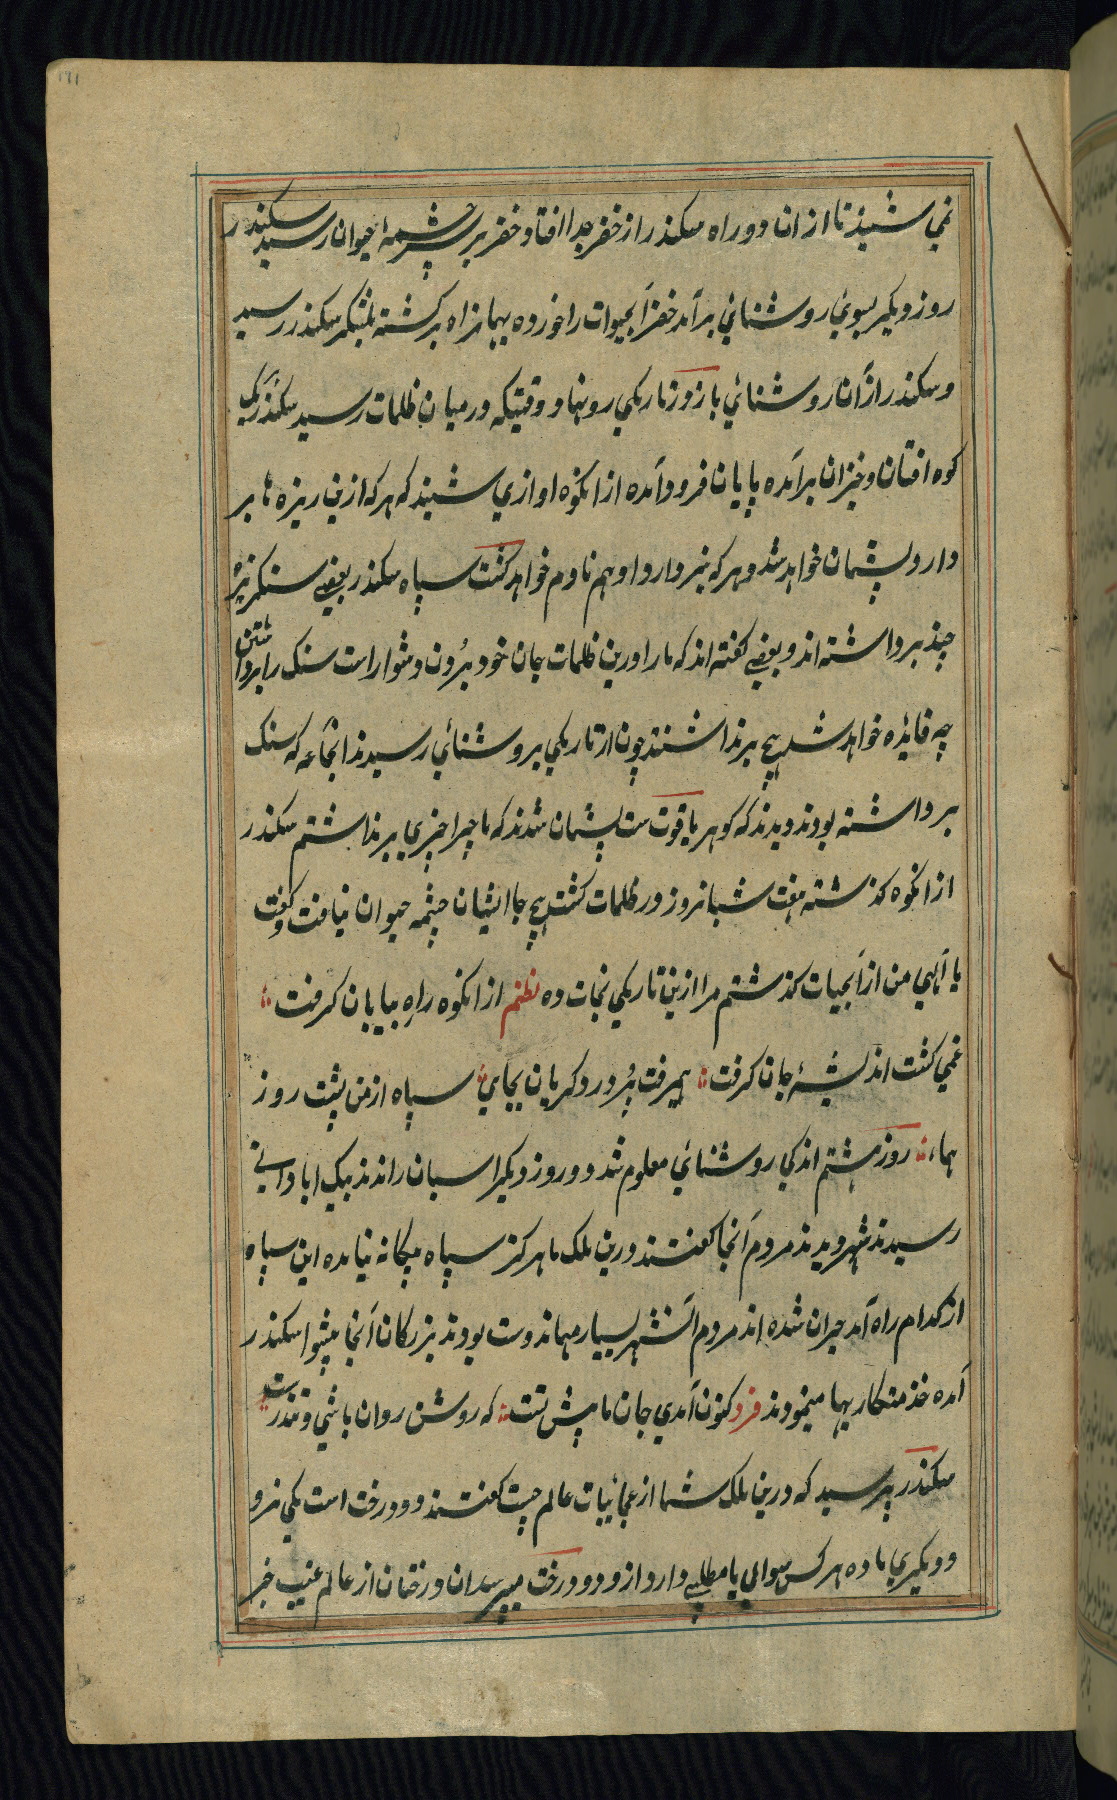 ۱۸۱
نمی شنیدند تا ازان دو راه سکندر از خضر جدا افتاد خضر بر سر چشمه احیوان رسید سکندر
روز دیگر بسوی روشنائی برآمد خضر آبحیوات را خورده بهمانراه برکشته بلشکر سکندر رسید
و سکندر ازآن روشنائی باز روز تاریکی رو نهاد وقتیکه در میان ظلمات رسید سکندر بیک
کوه افتان و خیزان برآمده پایان فرود آمده ازانکوه اوازی شنید که هر که ازین ریزه ها بر
دارد پشیمان خواهد شد و هر که نبردارد او هم نادم خواهد کشت سپاه سکندر بعضی سنکریزه
چند برداشته اند و بعضی کفته اند که مارا درین ظلمات جان خود برون دشوار است سنک را برداشتن
چه فایده خواهد شد هیچ برنداشتند چون از تاریکی بروشنائی رسیدند آنجماعه که سنک
برداشته بودند دیدند که کوهر یاقوت ست پشیمان شدند که ما چرا چیزی برنداشتم سکندر
ازانکوه کذشته هفت شبانروز در ظلمات کشت هیچ جا ایشان چشمه حیوان نیافت و کفت
یا آلهی من از آبحیات کذشتم مرا ازین تاریکی نجات ده نظم ازانکوه راه بیابان کرفت
غمی کشت اندیشهٔ جان کرفت همیرفت پر درد کریان بجای سپاه از من پشت روز
بهاء روز هشتم اندکی روشنائی معلوم شد و روز دیکر اسبان راندند بیک ابادانی
رسیدند شهر دیدند مردم آنجا کفتند درین ملک ما هرکز سپاه بیکانه نیامده این سپاه
از کدام راه آمد حیران شده اند مردم آنشهر بسیار مهماندوست بودند بزرکان آنجا پیشوا سکندر
آمده خدمتکاریها مینمودند فرد کنون آمدی جان ما پیش تست که روشن روان باشی و تندرست
سکندر پرسید که درین ملک شما از عجائبات عالم چیست کفتند دو درخت است یکی نر و
دویکری ماده هر کس سوالی یا مطلبی دارد ازو دو درخت میپرسد آن درختان از عالم غیب خبر